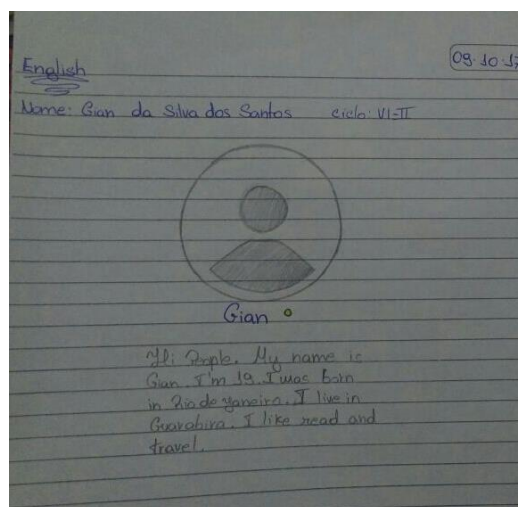 09.10.17
English
Name: Gian da Silva dos Santos ciclo: VI-II
Gian
Hi People. My name is
Gian. I'm 19. I was born
in Rio de Janeiro. I live in
Guarabira. I like read and
travel.